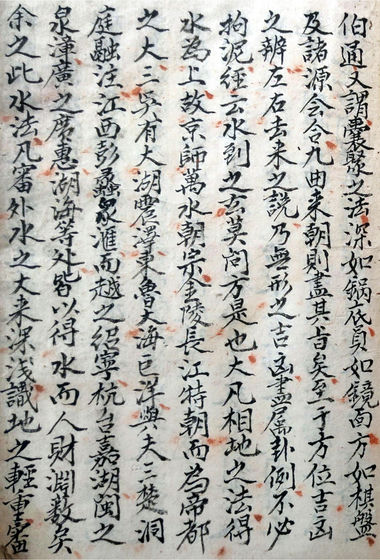 伯通又謂囊聚之法深如鍋底員如鏡面方如棋盤
及諸源会合九曲来朝則盡其旨矣至于方位吉凶
之辨左右去来之説乃無形之吉凶盡属卦例不必
拘泥經云水到之玄莫问方是也大凡相地之法得
水為上故京師萬水朝宗金陵長江特朝而為帝都
之大三吳有大湖震澤東魯大海巨洋與夫三楚洞
庭融注江西彭蠡泉滙而越之紹寧杭台嘉湖閩之
泉漳廣之廣惠湖海等处皆以得水而人財淵数矣
余之此水法凡審外水之大来深浅識地之輕重靈